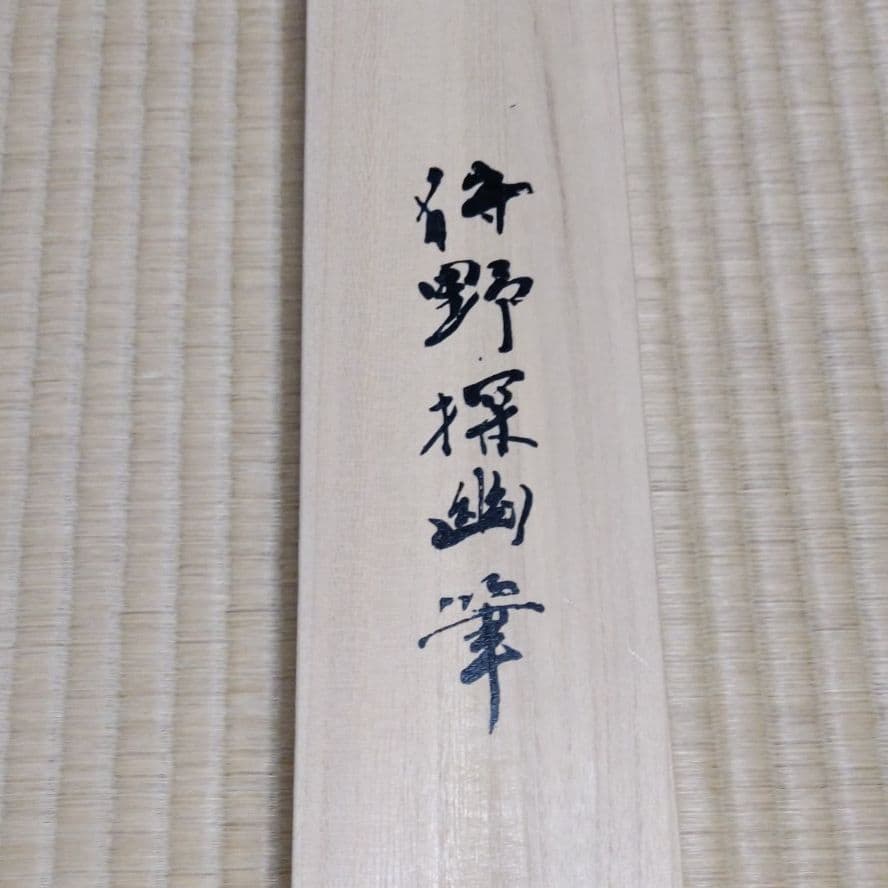 狩野探幽筆